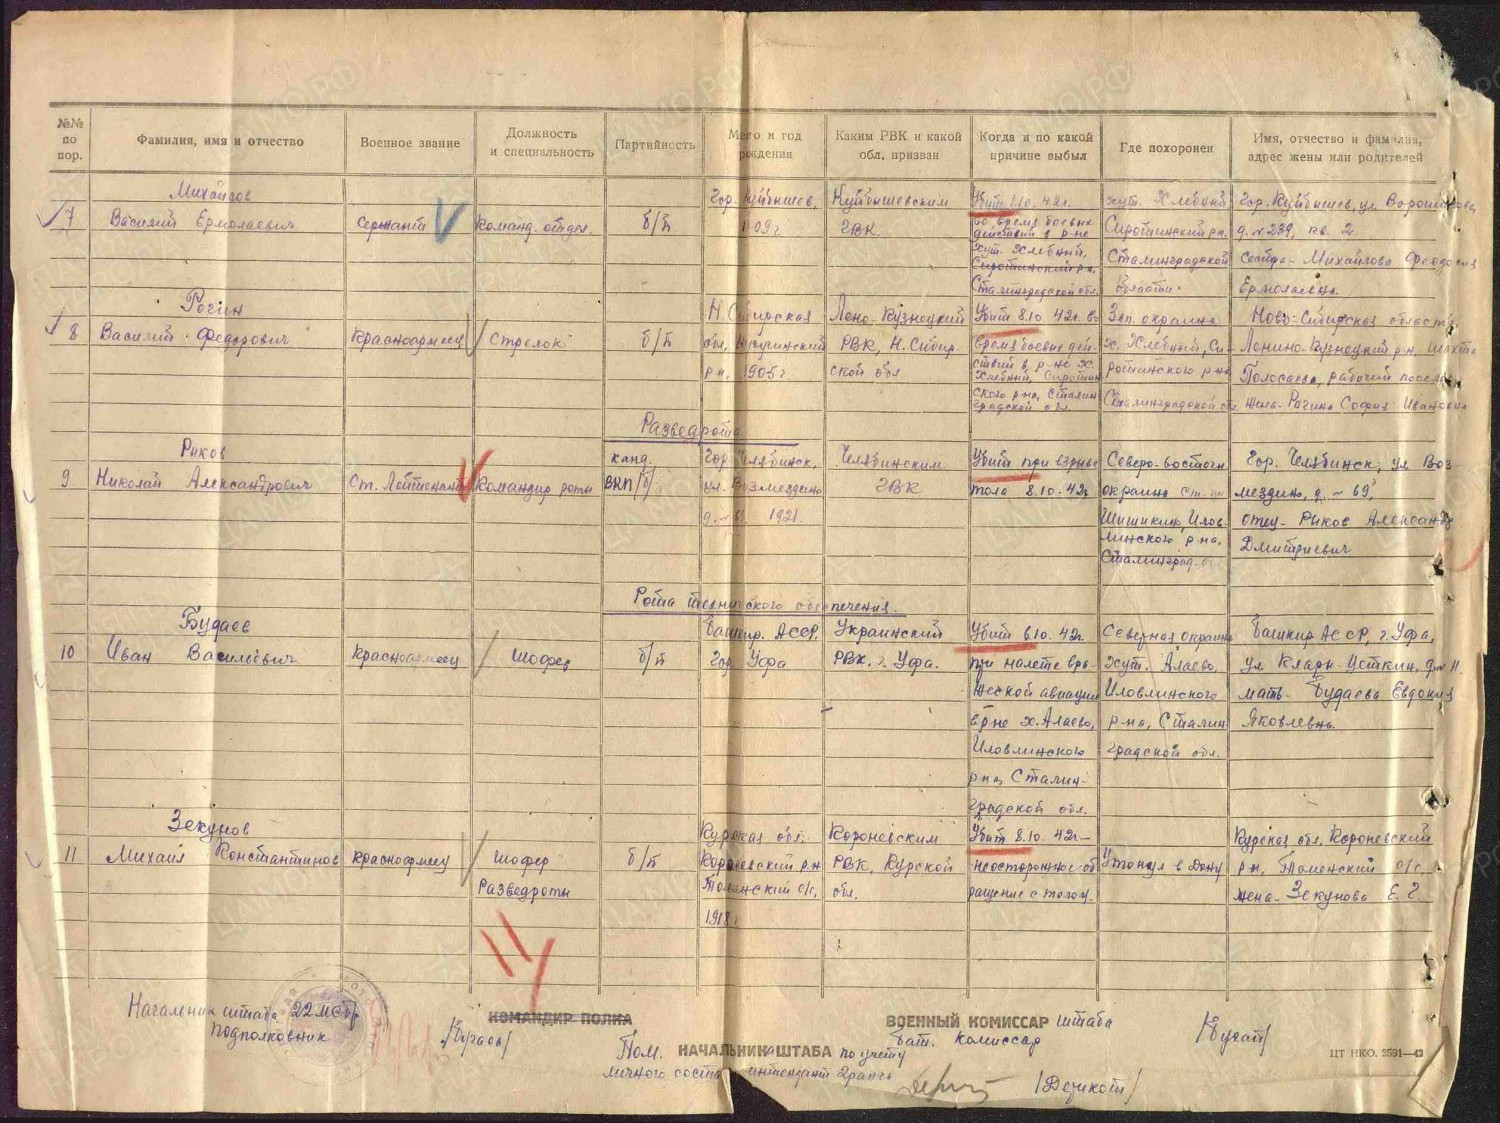 №№ по пор.
Фамилия, имя и отчество
Военное звание
Должность и специальность
Партийность
Место и год рождения
Каким РВК и какой обл. призван
Когда и по какой причине выбыл
Где похоронен
Имя, отчество и фамилия, адрес жены или родителей
7
Михайлов
Василий Ермолаевич
Сержант
Команд. отдел.
б/п
Гор. Куйбышев,
1909 г
Куйбышевским
ГВК.
Убит 1.10.42г.
во время боевых
действий в р-не
хут. Хлебный,
Сиротинский р-н,
Сталинградской обл.
хут. Хлебный
Сиротинский р-н.
Сталинградской
области.
Гор. Куйбышев, ул Ворошилова,
д. № 239, кв. 2
сестра - Михайлова Феодосия
Ермолаевна.
8
Рогин
Василий Федорович
Красноармеец
Стрелок
б/п
Н. Сибирская
обл,
р-н, 1905 г
Лено-Кузнецкий
РВК, Н. Сибир
ской обл
Убит 8.10.42г. во
время боевых дей-
ствий в р-не х.
Хлебный, Сиротин
ского р-на, Сталин
градской обл.
Зап. окраина
х. Хлебный, Си-
ротинского р-на
Сталинградской об.
Ново-Сибирская область
Ленино-Кузнецкий р-н, шахта
Полосаева, рабочий посел.
жена - Рогина София Ивановна
Разведрота
9
Риков
Николай Александрович
Ст. Лейтенант
Командир роты
канд.
ВКП/б/
Гор. Челябинск,
ул. Возмездино
1921.
Челябинским
ГВК
Убит при взрыве
тола 8.10.42г
Северо-восточн
окраина ст.
Шишкин, Илов-
линского р-на,
Сталинград.
Гор. Челябинск, ул Воз-
мездино, д. № 69,
отец - Рыков Александр
Дмитриевич
Рота технического обеспечения.
10
Будаев
Иван Васильевич
Красноармеец
Шофер
б/п
Башкир. АССР,
Гор Уфа
Украинский
РВК, г. Уфа.
Убит 6.10.42г.
при налете вра-
жеской авиации
в р-не х. Алаево,
Иловлинского
р-на, Сталин-
градской обл.
Северная окраина
хут. Алаево,
Иловлинского
р-на, Сталин
градской обл.
Башкир АССР, г. Уфа,
ул Клары-Цеткин, д. № 11.
мать - Будаева Евдокия
Яковлевна.
11
Зекунов
Михаил Константинов
Красноармеец
Шофер
Разведроты
б/п
Курская обл.
Кореневский р-н
с/с,
1918 г
Кореневским
РВК, Курской
обл.
Убит 8.10.42г-
неосторожное об
ращение с толом.
Утонул в Дону
Курская обл, Кореневский
р-н, с/с
жена - Зекунова Е. Г.
Начальник штаба 22 мсбр
Подполковник
КОМАНДИР ПОЛКА
Пом. НАЧАЛЬНИКА ШТАБА по учету
личного состава интендант 2 ранга
ВОЕННЫЙ КОМИССАР Штаба
Бат. комиссар
ЦТ НКО. 2591—42
ЦАМО.РФ